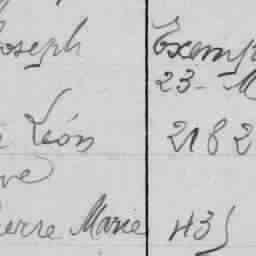 Joseph Exemp
23 - M
Léon 2182
ve
ierre Marie 435